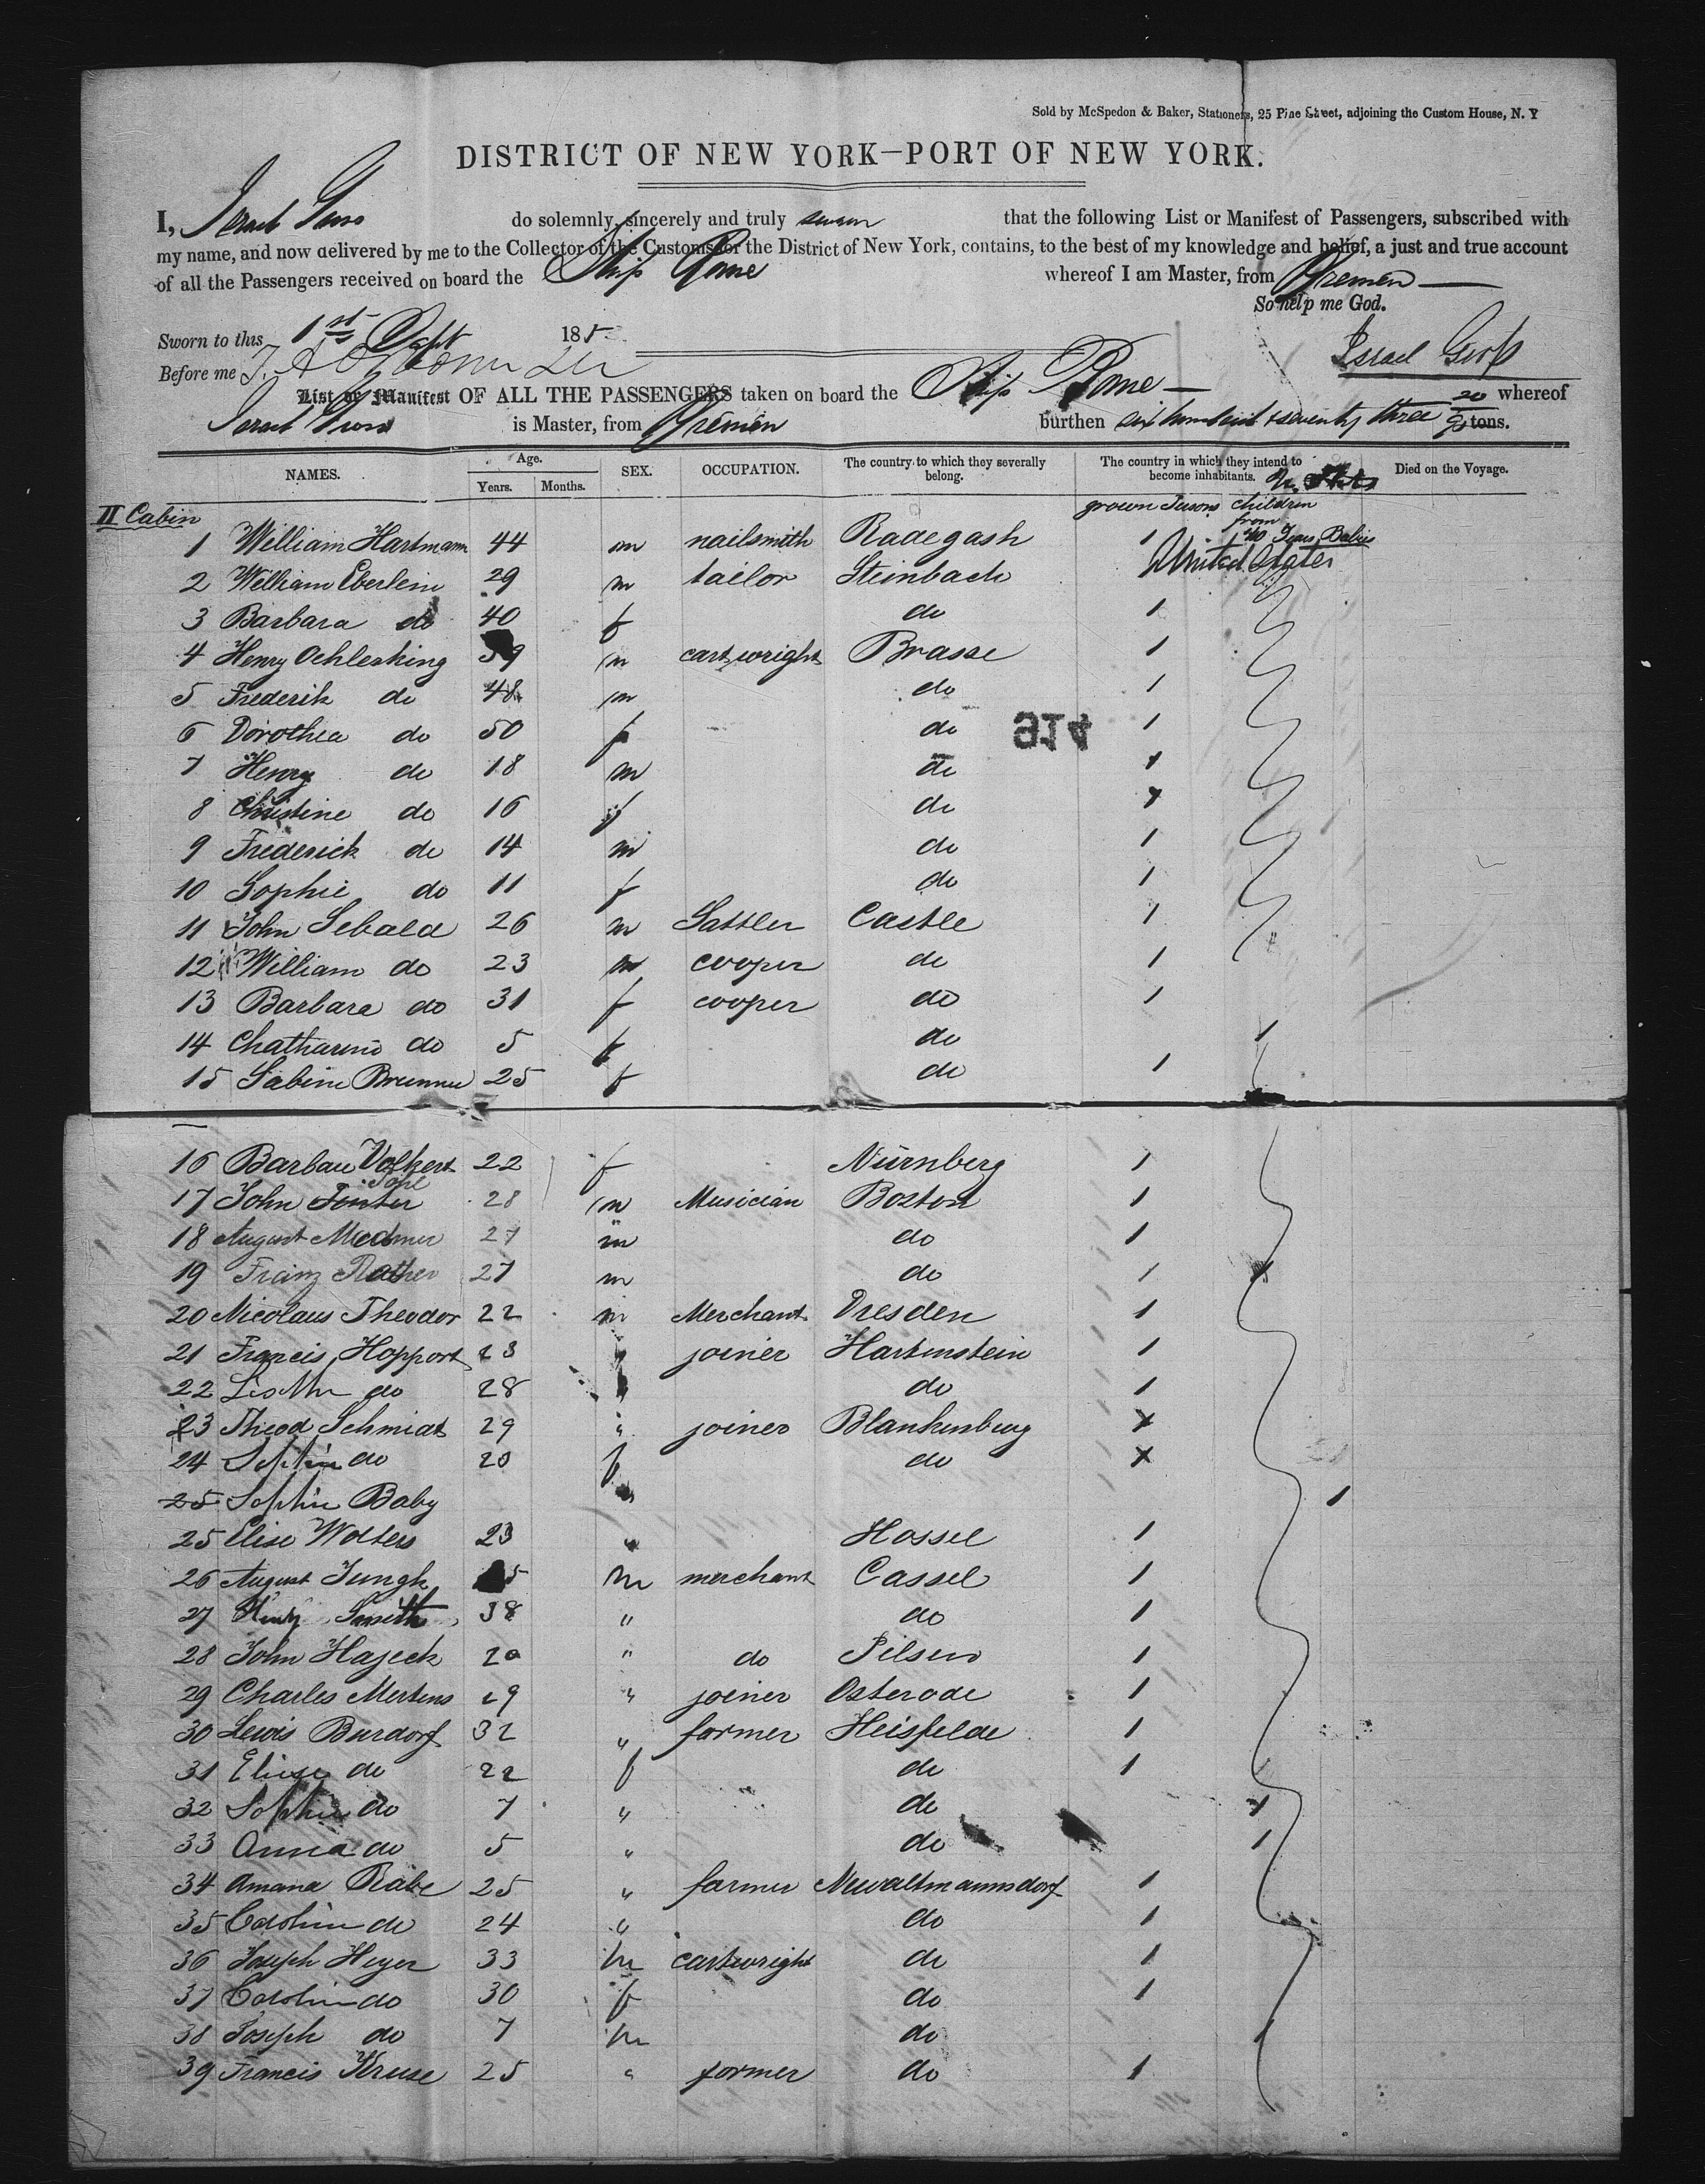 Sold by McSpedon & Baker, Stationers, 25 Pine Street, adjoining the Custom House, N. Y
DISTRICT OF NEW YORK—PORT OF NEW YORK.
I, Israel do solemnly, sincerely and truly swear that the following List or Manifest of Passengers, subscribed with
my name, and now delivered by me to the Collector of the Customs for the District of New York, contains, to the best of my knowledge and belief, a just and true account
of all the Passengers received on board the Ship Rome whereof I am Master, from Bremen
So help me God.
Sworn to this 1st Sept 185
Israel
Before me
List or Manifest OF ALL THE PASSENGERS taken on board the Ship Rome whereof
Israel is Master, from Bremen burthen six hundred & seventy three 20/95 tons.
NAMES. Age. Years. Months. SEX. OCCUPATION. The country to which they severally belong. The country in which they intend to become inhabitants. Died on the Voyage.
II Cabin grown Persons children from Years Babies
1 William Hartmann 44 m nailsmith Radegash 1
United States
2 William Eberlein 29 m tailor Steinbach
3 Barbara do 40 f do 1
4 Henry Oehlerking 39 m cartwright Brasse 1
5 Frederik do 48 m do 1
6 Dorothea do 50 f do 1
914
7 Henry do 18 m do 1
8 Christine do 16 f do 1
9 Frederick do 14 m do 1
10 Sophie do 11 f do 1
11 John Sebald 26 m Sattler Castle 1
12 William do 23 m cooper do 1
13 Barbara do 31 f cooper do 1
14 Chatharine do 5 f do 1
15 Sabine Brunner 25 f do 1
16 Volkert 22 f Nürnberg 1
17 John 28 m Musician Boston 1
18 August 27 m do 1
19 Franz Rather 27 m do 1
20 Nicolaus Theodor 22 m Merchant Dresden 1
21 Francis Hopport 23 joiner Hartenstein 1
22 do 28 do 1
23 Theod Schmidt 29 " joiner Blankenburg 1
24 Sophie do 20 f do 1
25 Sophie Baby 1
25 Elise Wolters 23 " Hassel 1
26 August Jungk 5 m merchant Cassel 1
27 Smith 38 " do 1
28 John Hajeck 20 " do Pilsen 1
29 Charles Mertens 29 " joiner Osterode 1
30 Lewis Burdorf 32 " farmer Heisfelde 1
31 Elise do 22 f do 1
32 Sophie do 7 " do 1
33 Anna do 5 " do 1
34 Amana Rabe 25 " farmer Newaltmannsdorf 1
35 Carolin do 24 " do 1
36 Joseph Heyer 33 m cartwright do 1
37 Carolin do 30 f do 1
38 Joseph do 7 m do 1
39 Francis Kruse 25 " farmer do 1